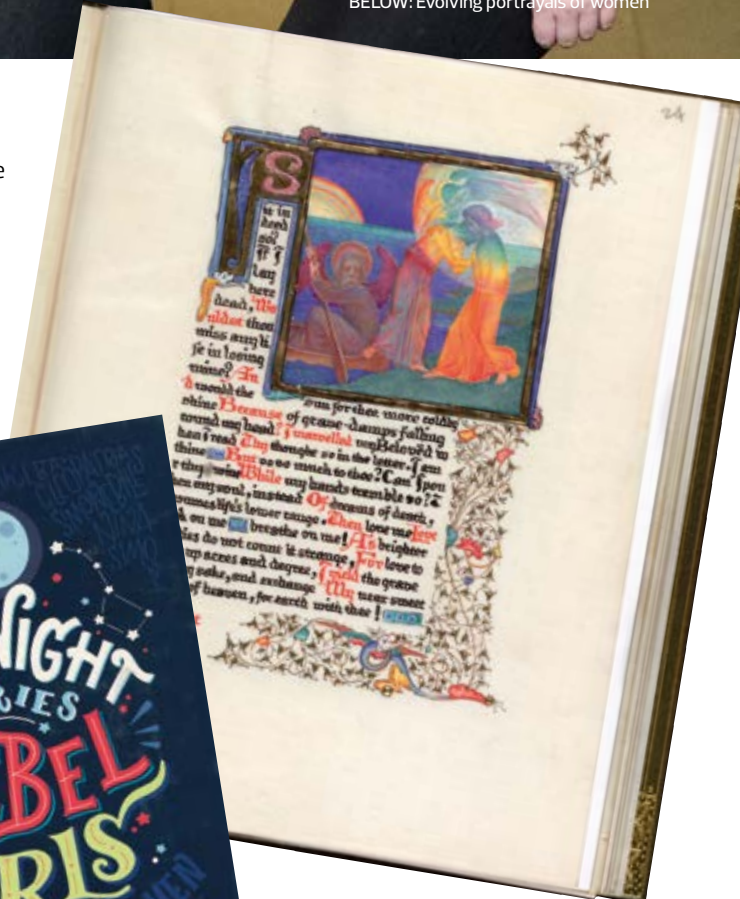 BELOW: Evolving portrayals of women
e
24
S
it in
deed
so?
If I
lay
here
dead, Wo
uldst thou
miss any li
fe in losing
mine? An
d would the
sun for thee more coldly
shine Because of grave-damps falling
round my head? I marvelled my Beloved w
hen I read Thy thought so in the letter. I am
thine But so so much to thee? Can I pou
r thy wine While my hands tremble so?
my soul, instead Of dreams of death,
life's lower range. Then love me Love
on me breathe on me! As brighter
do not count it strange, For love to
up acres and degree, I yield the grave
sake, and exchange My near sweet
of heaven, for earth with thee!
NIGHT
RIES
EBEL
RLS